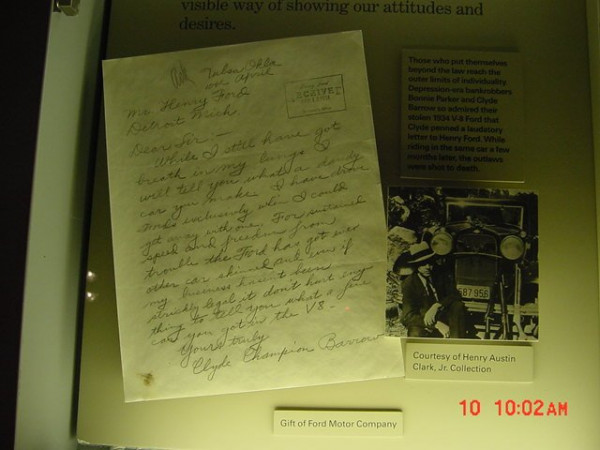 visible way of showing our attitudes and
desires.
Tulsa Okla
10th April
Mr. Henry Ford
Detroit Mich.
Dear Sir: -
While I still have got
breath in my lungs I
will tell you what a dandy
car you make. I have drove
Fords exclusively when I could
get away with one. For sustained
speed and freedom from
trouble the Ford has got ever
other car skinned and even if
my business hasen't been
strickly legal it don't hurt eny
thing to tell you what a fine
car you got in the V8 -
Yours truly
Clyde Champion Barrow
RECEIVED
Those who put themselves
beyond the law reach the
outer limits of individuality.
Depression-era bankrobbers
Bonnie Parker and Clyde
Barrow so admired their
stolen 1934 V-8 Ford that
Clyde penned a laudatory
letter to Henry Ford. While
riding in the same car a few
months later, the outlaws
were shot to death.
587 956
Courtesy of Henry Austin
Clark, Jr. Collection
Gift of Ford Motor Company
10 10:02AM